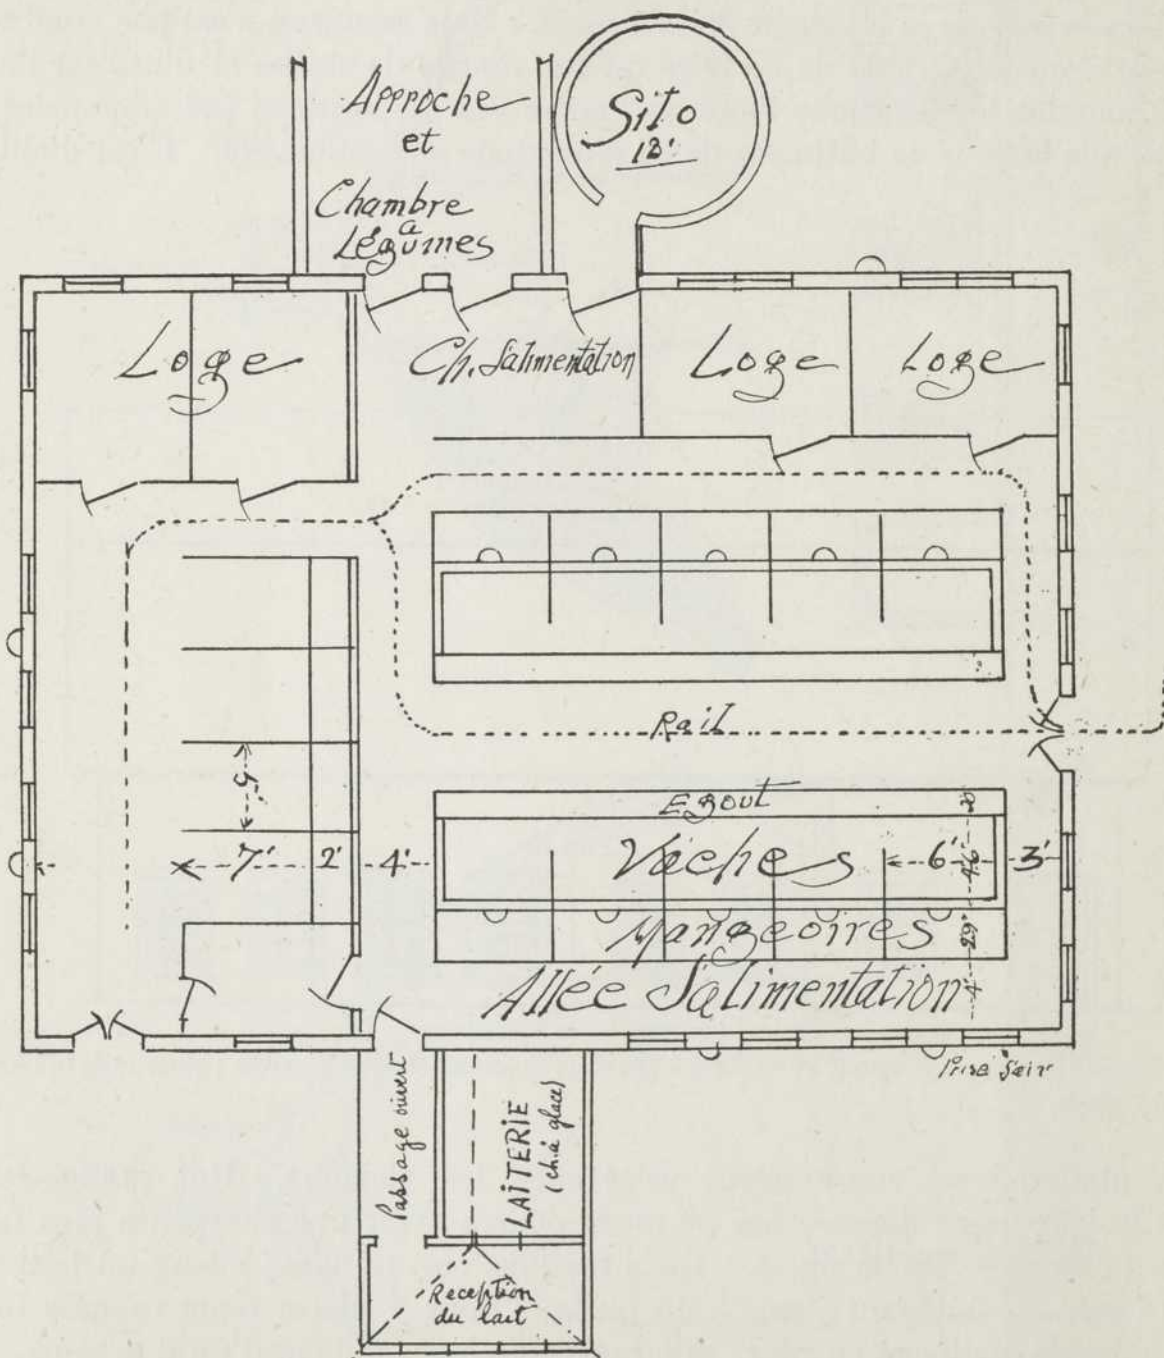 Approche
et
Chambre
a
Légumes
Silo
12'
Loge
Ch. d'alimentation
Loge
Loge
Rail
Egout
5'
7' 2' 4'
Vaches
6'
4'6"
3'
Mangeoires
29"
Allée d'alimentation
4'
Prise d'air
Passage ouvert
LAITERIE
(ch. à glace)
Reception
du lait